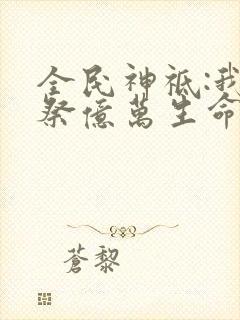 全民神祇:我
祭億萬生命
蒼黎